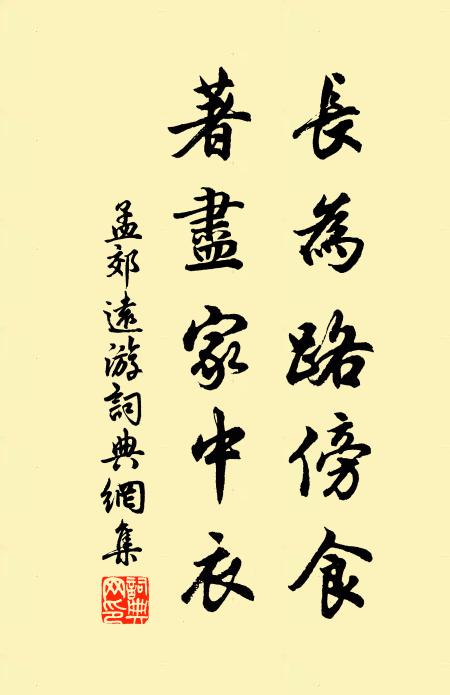 長為路傍食
著盡家中衣
孟郊遠游詞典網集
詞典網印